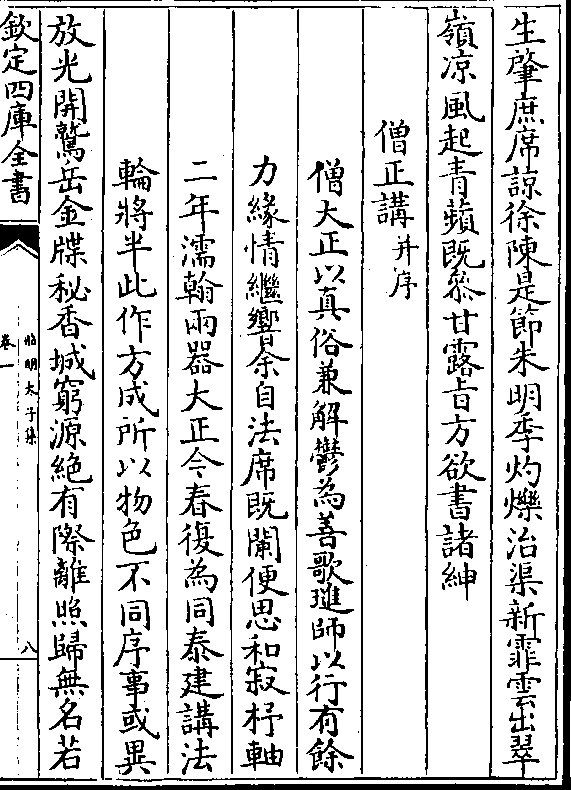 生肇庶席諒徐陳是節朱明季灼爍治渠新霏雲出翠
嶺凉風起青蘋既叅甘露旨方欲書諸紳
僧正講并序
僧大正以真俗兼解鬱為善歌璡師以行有餘
力緣情繼響余自法席既闌便思和寂杼軸
二年濡翰兩器大正今春復為同泰建講法
輪將半此作方成所以物色不同序事或異
放光開鷲岳金牒秘香城窮源絶有際離照歸無名若
欽定四庫全書
昭明太子集
卷一
八